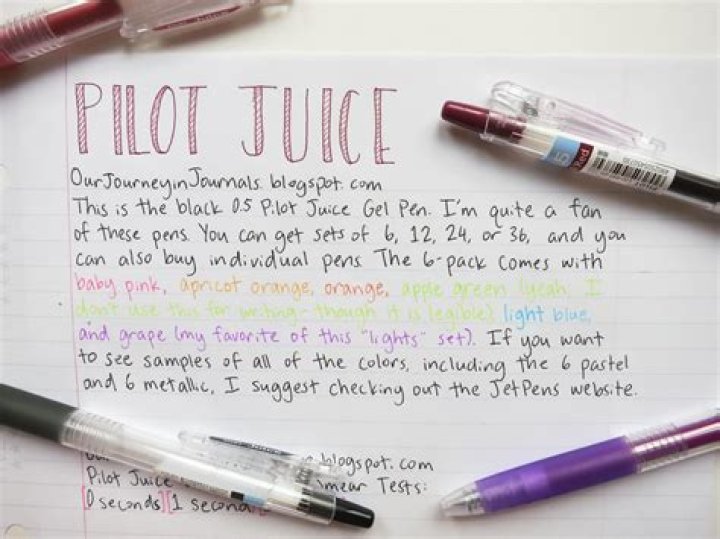 PILOT JUICE
OurJourneyinJournals.blogspot.com
This is the black 0.5 Pilot Juice Gel Pen. I'm quite a fan
of these pens. You can get sets of 6, 12, 24, or 36, and you
can also buy individual pens. The 6-pack comes with
baby pink, apricot orange, orange, apple green (yeah, I
don't use this for writing - though it is legible) light blue,
and grape (my favorite of this "lights" set). If you want
to see samples of all of the colors, including the 6 pastel
and 6 metallic, I suggest checking out the JetPens website.
blogspot.com
Pilot Juice Smear Tests:
[0 seconds] [1 second
05
Red